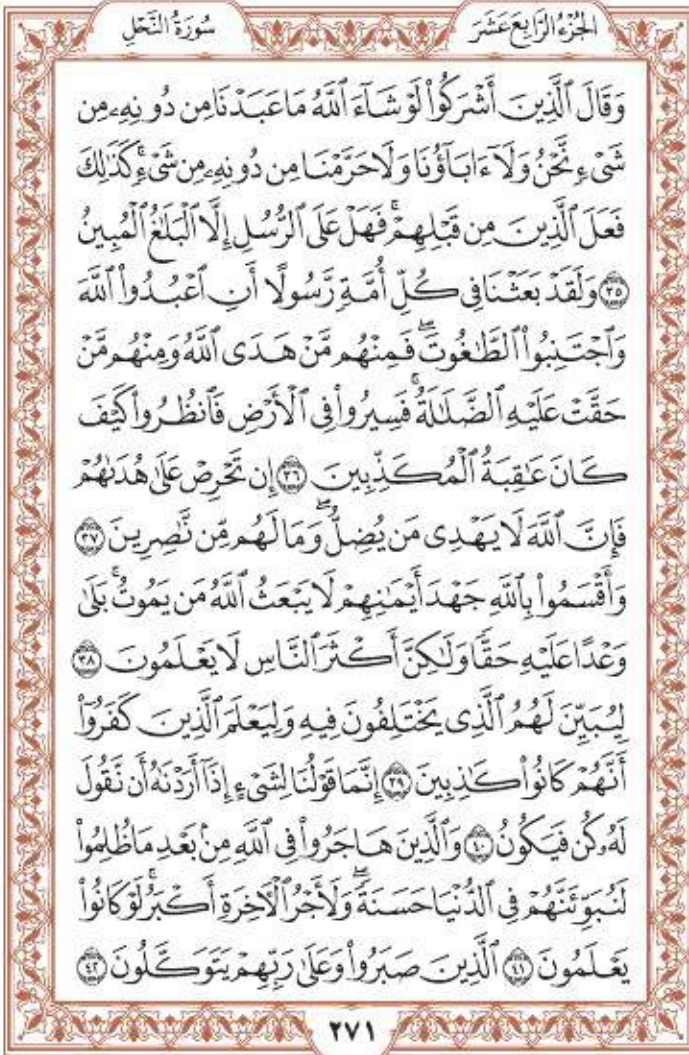 الجُزْءُ الرَّابِعَ عَشَرَ
سُورَةُ النَّحْلِ
وَقَالَ ٱلَّذِينَ أَشْرَكُوا۟ لَوْ شَآءَ ٱللَّهُ مَا عَبَدْنَا مِن دُونِهِۦ مِن
شَىْءٍ نَّحْنُ وَلَآ ءَابَآؤُنَا وَلَا حَرَّمْنَا مِن دُونِهِۦ مِن شَىْءٍۚ كَذَٰلِكَ
فَعَلَ ٱلَّذِينَ مِن قَبْلِهِمْۚ فَهَلْ عَلَى ٱلرُّسُلِ إِلَّا ٱلْبَلَٰغُ ٱلْمُبِينُ
٣٥ وَلَقَدْ بَعَثْنَا فِى كُلِّ أُمَّةٍ رَّسُولًا أَنِ ٱعْبُدُوا۟ ٱللَّهَ
وَٱجْتَنِبُوا۟ ٱلطَّٰغُوتَۖ فَمِنْهُم مَّنْ هَدَى ٱللَّهُ وَمِنْهُم مَّنْ
حَقَّتْ عَلَيْهِ ٱلضَّلَٰلَةُۚ فَسِيرُوا۟ فِى ٱلْأَرْضِ فَٱنظُرُوا۟ كَيْفَ
كَانَ عَٰقِبَةُ ٱلْمُكَذِّبِينَ ٣٦ إِن تَحْرِصْ عَلَىٰ هُدَىٰهُمْ
فَإِنَّ ٱللَّهَ لَا يَهْدِى مَن يُضِلُّۖ وَمَا لَهُم مِّن نَّٰصِرِينَ ٣٧
وَأَقْسَمُوا۟ بِٱللَّهِ جَهْدَ أَيْمَٰنِهِمْ لَا يَبْعَثُ ٱللَّهُ مَن يَمُوتُۚ بَلَىٰ
وَعْدًا عَلَيْهِ حَقًّا وَلَٰكِنَّ أَكْثَرَ ٱلنَّاسِ لَا يَعْلَمُونَ ٣٨
لِيُبَيِّنَ لَهُمُ ٱلَّذِى يَخْتَلِفُونَ فِيهِ وَلِيَعْلَمَ ٱلَّذِينَ كَفَرُوٓا۟
أَنَّهُمْ كَانُوا۟ كَٰذِبِينَ ٣٩ إِنَّمَا قَوْلُنَا لِشَىْءٍ إِذَآ أَرَدْنَٰهُ أَن نَّقُولَ
لَهُۥ كُن فَيَكُونُ ٤٠ وَٱلَّذِينَ هَاجَرُوا۟ فِى ٱللَّهِ مِنۢ بَعْدِ مَا ظُلِمُوا۟
لَنُبَوِّئَنَّهُمْ فِى ٱلدُّنْيَا حَسَنَةًۖ وَلَأَجْرُ ٱلْءَاخِرَةِ أَكْبَرُۚ لَوْ كَانُوا۟
يَعْلَمُونَ ٤١ ٱلَّذِينَ صَبَرُوا۟ وَعَلَىٰ رَبِّهِمْ يَتَوَكَّلُونَ ٤٢
٢٧١